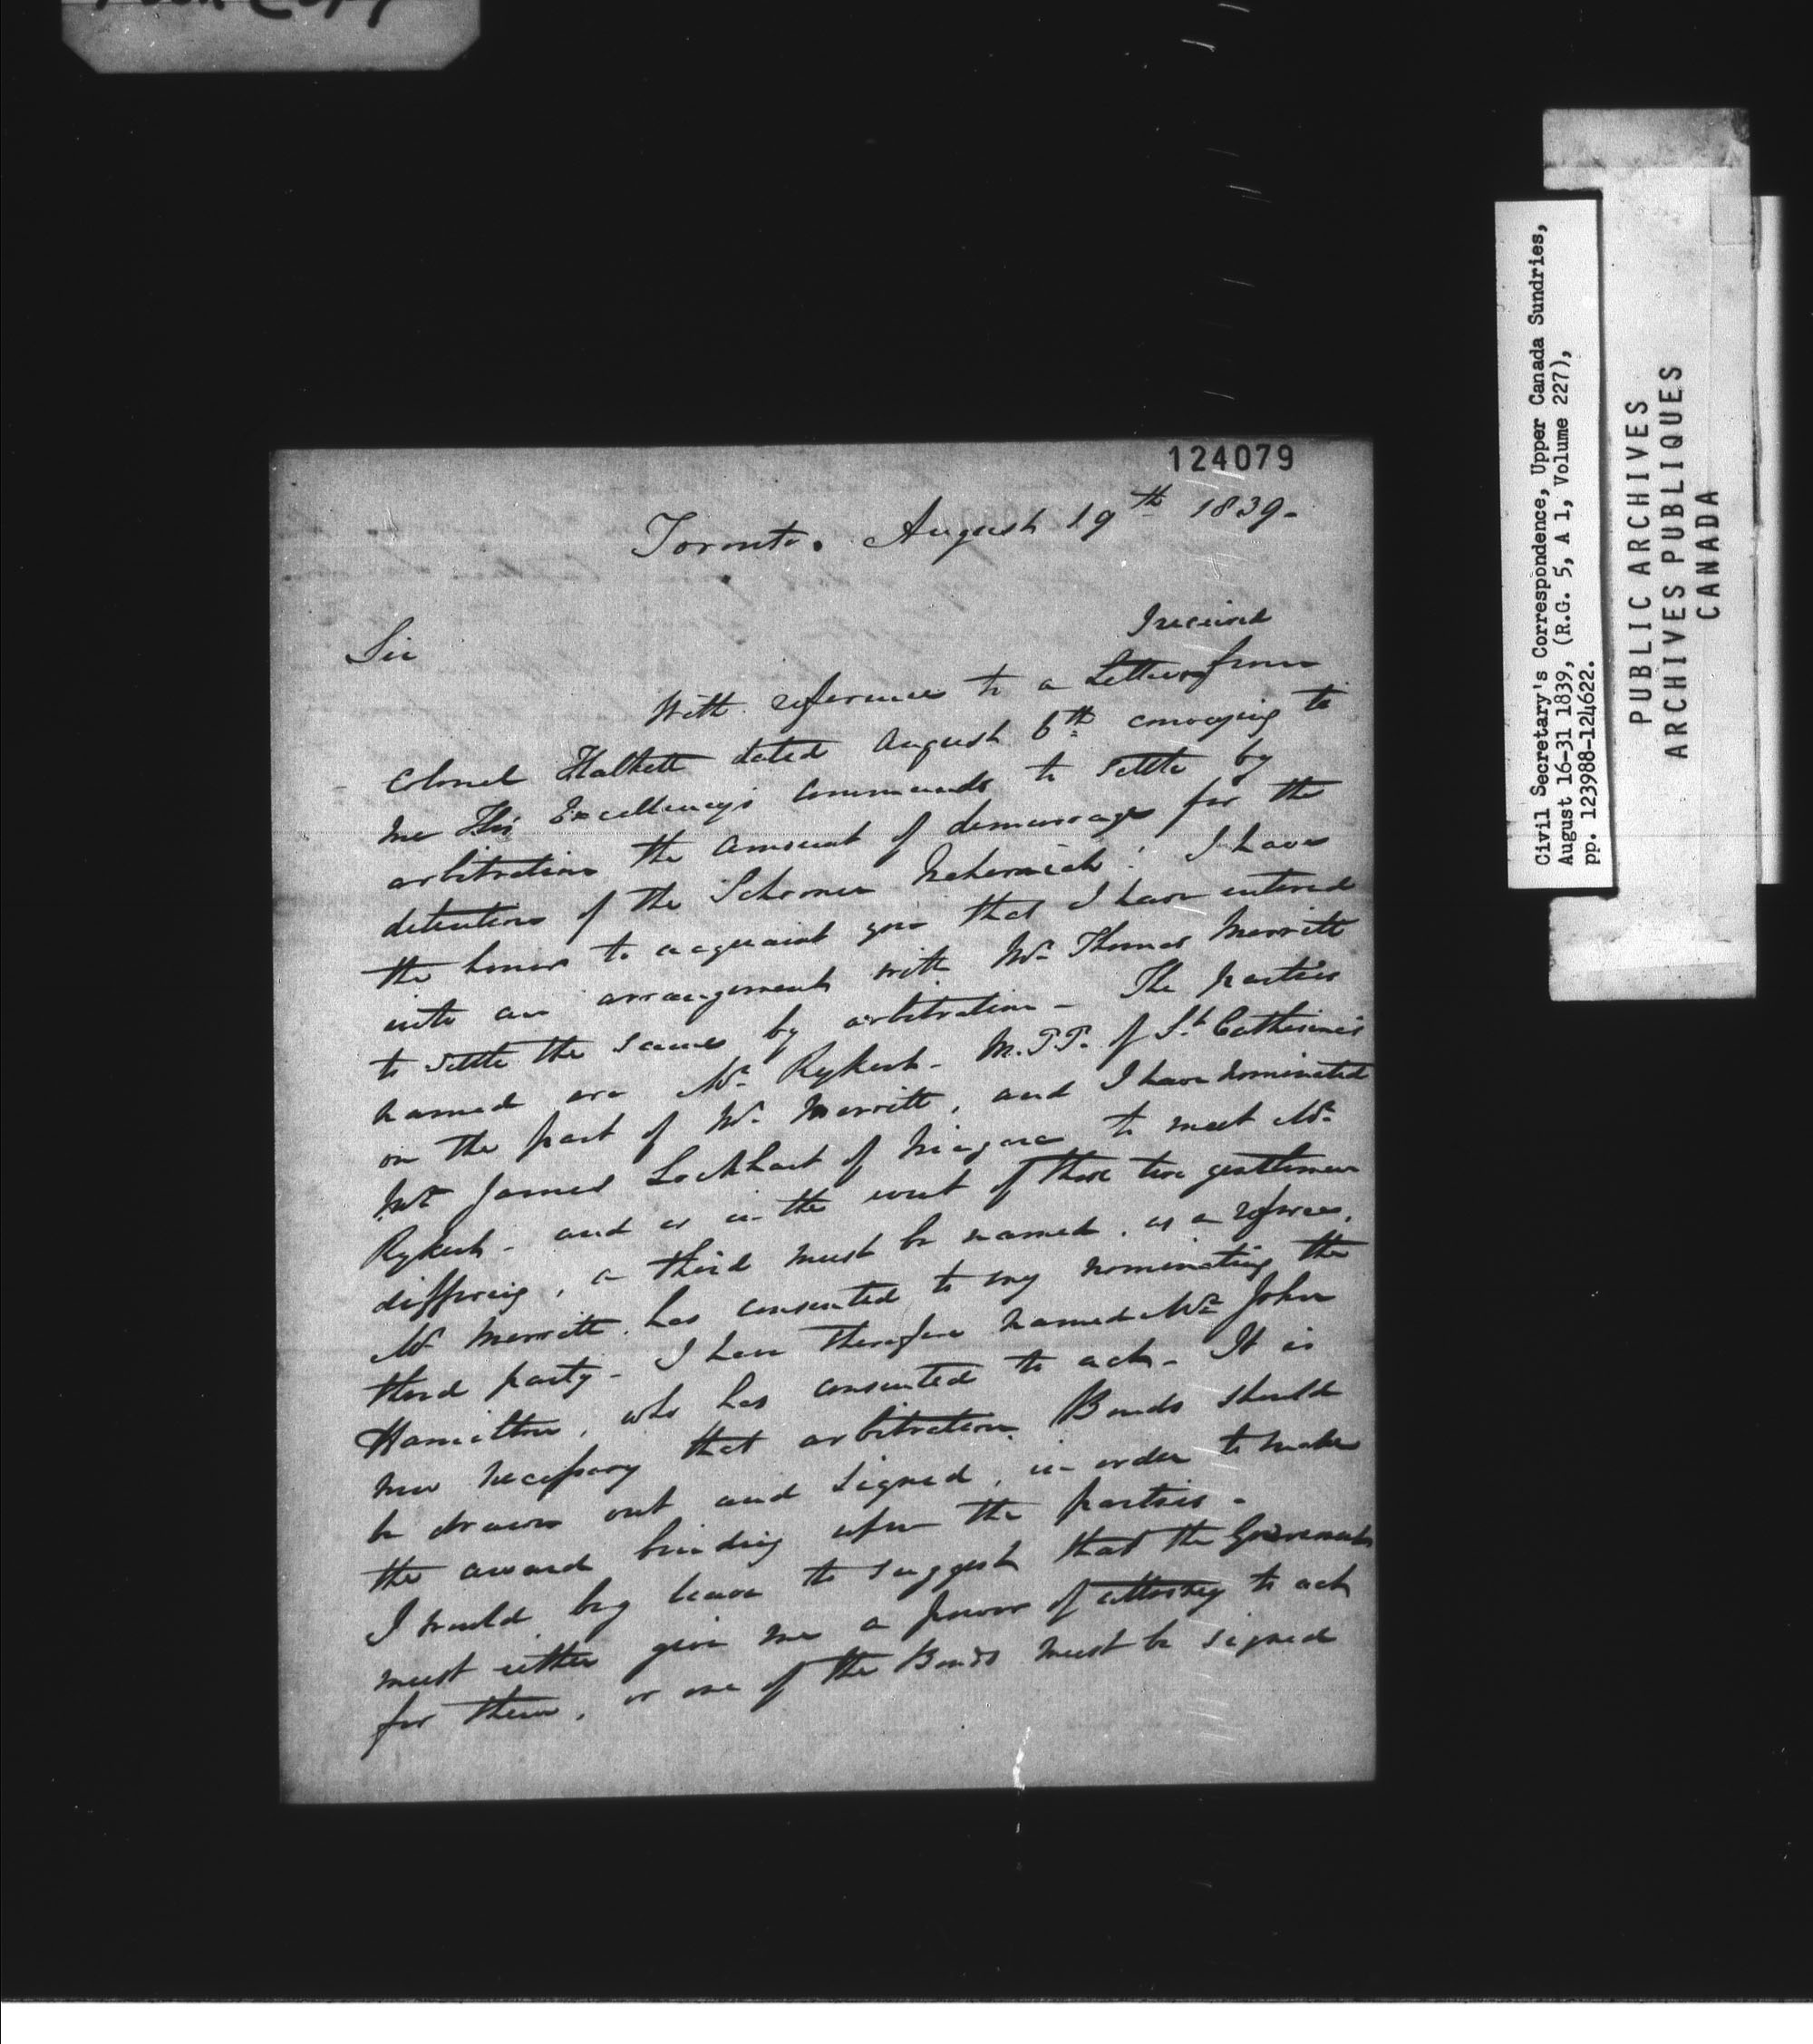 124079
Toronto. August 19th 1839.
Sir
I received
With reference to a Letter from
Colonel Halkett dated August 6th conveying to
me His Excellency's commands to settle by
arbitration the amount of demurrage for the
detention of the Schooner Nehemiah. I have
the honor to acquaint you that I have entered
into an arrangement with Mr Thomas Merritt
to settle the same by arbitration - The parties
named are Mr Rykert - M.P.P. of St. Catherines
on the part of Mr. Merritt, and I have nominated
Mr James Lockhart of Niagara to meet Mr
Rykert - and as in the event of those two gentlemen
differing, a third must be named, as a referee.
Mr Merritt has consented to my nominating the
third party - I have therefore named Mr John
Hamilton, who has consented to act - It is
now necessary that arbitration Bonds should
be drawn out and signed, in order to make
the award binding upon the parties -
I would beg leave to suggest that the Government
must either give me a power of attorney to act
for them, or one of the Bonds must be signed
Civil Secretary's Correspondence, Upper Canada Sundries,
August 16-31 1839, (R.G. 5, A 1, Volume 227),
pp. 123988-124622.
PUBLIC ARCHIVES
ARCHIVES PUBLIQUES
CANADA